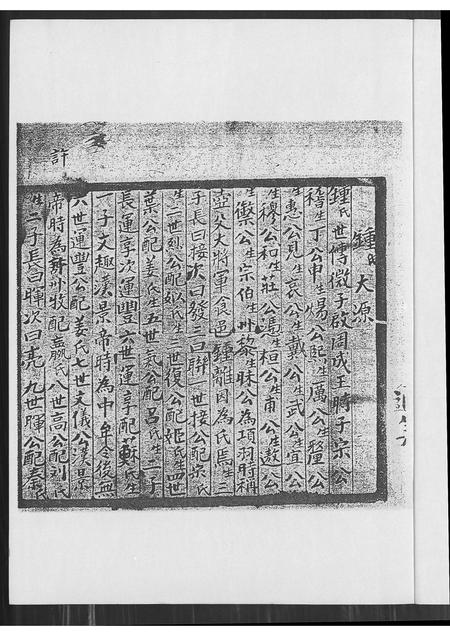 鍾氏大源
鍾氏世傳微子啟周成王時子宗公
稽生丁公申生煬公熙生厲公生釐公
生惠公見生哀公生戴公生武公生宣公
生穆公和生莊公馮生桓公生甫公生敖公
生衡公生宗伯生州黎生昧公為項羽時稱
壺父大將軍食邑鍾離因為氏焉二
子長曰接次曰發三曰聯一世接公配宗氏
生二世烈公配姒氏生三世復公配姬氏生四世
葉公配姜氏生五世氣公配呂氏生二子
長運享次運豐六世運享配蘇氏生
子文趣漢景帝時為中牟令後無
六世運豐公配姜氏七世文儀公漢景
帝時為荊州牧配嬴氏八世高公配列氏
生二子長曰暉次曰亮九世暉公配秦氏
許